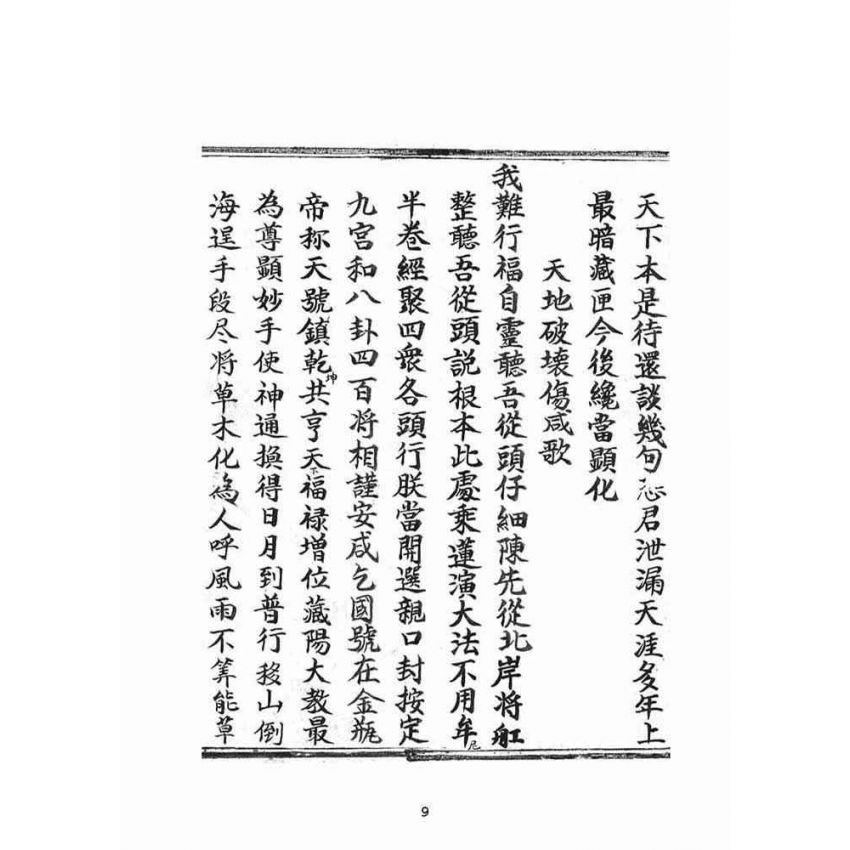 天下本是待還談幾句恐君泄漏天涯多年上
最暗藏匣今後纔當顯化
天地破壞傷咸歌
我難行福自靈聽吾從頭仔細陳先從北岸将舡
整聽吾從頭説根本此處乘蓮演大法不用牟尼
半巻經聚四衆各頭行朕當開選親口封按定
九宫和八卦四百将相謹安咸乞國號在金瓶
帝称天號鎮乾坤共亨天下福禄增位蔵陽大教最
為尊顕妙手使神通換得日月到普行移山倒
海逞手段尽将草木化為人呼風雨不筭能草
9